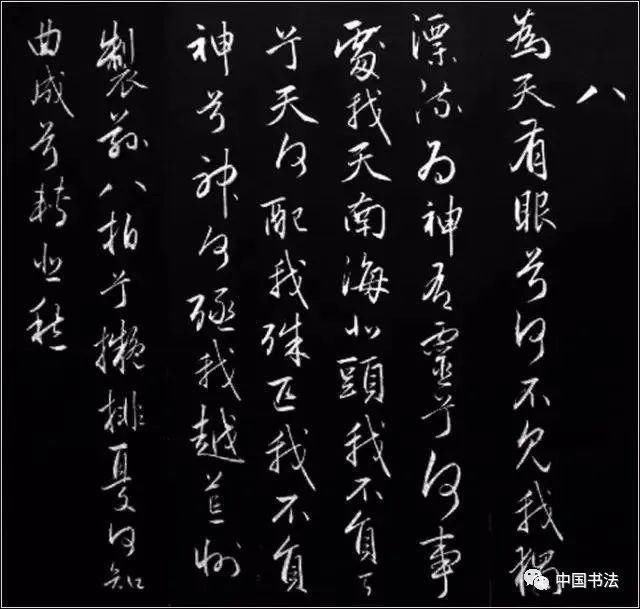 八
為天有眼兮何不見我獨
漂流為神有靈兮何事
處我天南海北頭我不負
兮天何配我殊匹我不負
神兮神何殛我越荒州
製茲八拍兮擬排憂何知
曲成兮轉悲愁
中国书法